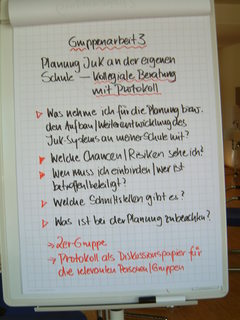 Gruppenarbeit 3
Planung JuK an der eigenen
Schule – kollegiale Beratung
mit Protokoll
Was nehme ich für die Planung bzw.
den Aufbau/Weiterentwicklung des
JuK-Systems an meiner Schule mit?
Welche Chancen/Risiken sehe ich?
Wen muss ich einbinden/wer ist
betroffen/beteiligt?
Welche Schnittstellen gibt es?
Was ist bei der Planung zu beachten?
→ 2er-Gruppe
→ Protokoll als Diskussionspapier für
die relevanten Personen/Gruppen